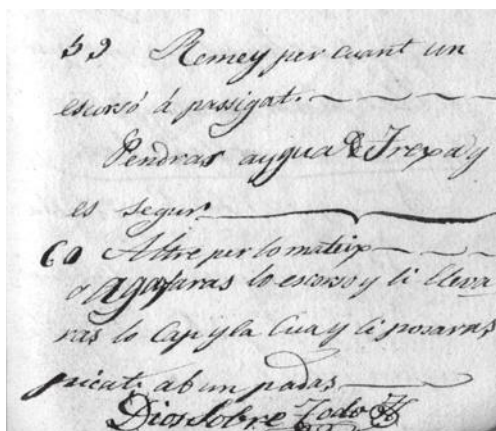 59 Remey per cuant un
escursó á passigat.
Pendras aygua d Frexa y
es segur.
60 Altre per lo mateix
o agafaras lo escorso y li lleva
ras lo Cap y la Cua y li posaras
picat; ab un padas
Dios Sobre Todo